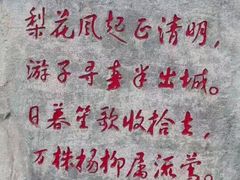 梨花风起正清明，
游子寻春半出城。
日暮笙歌收拾去，
万株杨柳属流莺。